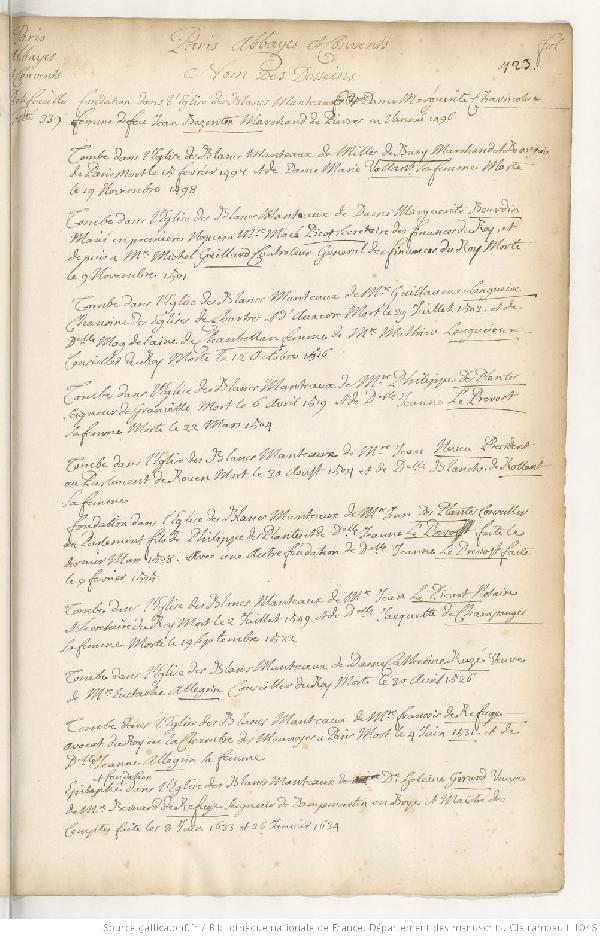 Paris
Abbayes
Convents
Paris Abbayes et Convents
fol
423.
Nom Des Desseins
fondation dans l'Eglise des Blancs Manteaux de Dame Marguerite
femme de feu Jean Marchand de Paris en 1496
Tombe dans l'Eglise des Blancs Manteaux de Milles de Bury Marchand
de Paris Mort le 15 février 1497 et de Dame Marie Vollant sa femme Morte
le 19 Novembre 1498
Tombe dans l'Eglise des Blancs Manteaux de Dame Marguerite Bourdin
en premieres Nopces a Mre Macé Picot Secretaire des finances du Roy, et
depuis a Mre Michel Gaillard Controleur General des finances du Roy Morte
le 9 Novembre 1501
Tombe dans l'Eglise des Blancs Manteaux de Mre Guillaume Longueioue
Chanoine des Eglises de Chartres et d'Auxerre Mort le 29 Juillet 1503. et de
Dlle Magdelaine de Chambellan femme de Mre Mathieu Longueioue
Conseiller du Roy Morte le 12 Octobre 1516
Tombe dans l'Eglise des Blancs Manteaux de Mre Philippe des Plantes
Seigneur de Granville Mort le 6 Avril 1519 et de Dlle Jeanne Le Prevost
sa femme Morte le 22 Mars 1504
Tombe dans l'Eglise des Blancs Manteaux de Mre Jean President
au Parlement de Rouen Mort le 30 Aoust 1504 et de Dlle Blanche de
sa femme
fondation dans l'Eglise des Blancs Manteaux de Mre Jean des Plantes Conseiller
au Parlement fils de Philippe des Plantes et de Dlle Jeanne Le Prevost faite le
dernier Mars 1508. Avec une autre fondation de Dlle Jeanne Le Prevost faite
le 9 février 1504
Tombe dans l'Eglise des Blancs Manteaux de Mre Jean Le Picart Notaire
et Secretaire du Roy Mort le 2 Juillet 1549 et de Dlle Jacquette de Champanges
sa femme Morte le 19 Septembre 1522
Tombe dans l'Eglise des Blancs Manteaux de Dame Catherine Ruzé Veuve
de Mre Eustache Allegrin Conseiller du Roy Morte le 30 Avril 1526
Tombe dans l'Eglise des Blancs Manteaux de Mre francois de Refuge
avocat du Roy en la Chambre des Monnoyes a Paris Mort le 4 Juin 1531. et de
Dlle Jeanne Allegrin sa femme
et fondation
Epitaphe dans l'Eglise des Blancs Manteaux de De Heleine Girard Veuve
de Mre Bernard de Refuge Seigneur de Dampmartin en Brye et Maistre des
Comptes faite les 8 Juin 1633 et 26 Janvier 1634
Source gallica.bnf.fr / Bibliothèque nationale de France. Département des manuscrits. Clairambault 1046